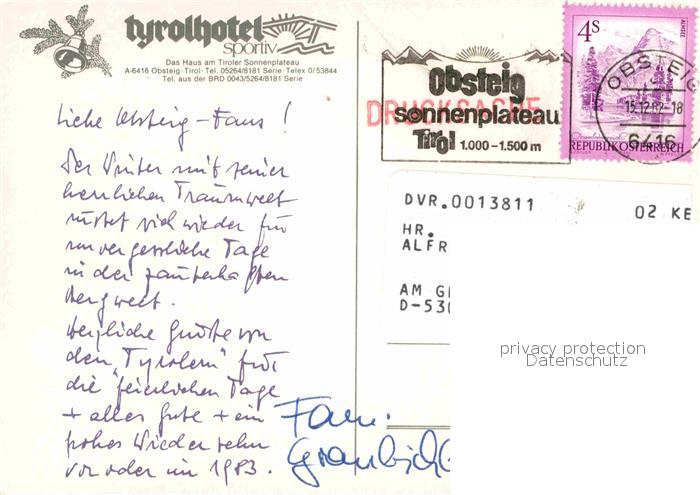 tyrolhotel
sportiv
Das Haus am Tiroler Sonnenplateau
A-6416 Obsteig·Tirol·Tel. 05264/8181 Serie·Telex 0/53844
Tel. aus der BRD 0043/5264/8181 Serie
Liebe Obsteig-Fans!
Der Winter mit seiner
herrlichen Traumwelt
rüstet sich wieder für
unvergessliche Tage
in der zauberhaften
Bergwelt.
Herzliche Grüße von
den "Tyrolern" für
die feierlichen Tage
+ alles Gute + ein
frohes Wiedersehn
vor oder im 1983.
Fam.
DRUCKSACHE
Obsteig
sonnenplateau
Tirol 1.000-1.500 m
4S
ALMSEE
REPUBLIK ÖSTERREICH
OBSTEIG
15.12.82-18
6416
DVR.0013811 02 KE
HR.
ALFR
AM GE
D-530
privacy protection
Datenschutz